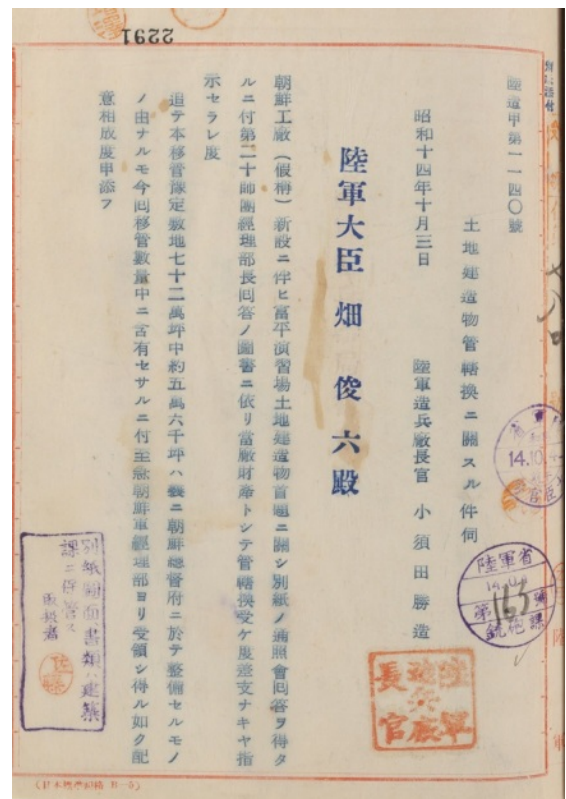 2291
陸造甲第一一四〇號
土地建造物管轄換ニ關スル件伺
昭和十四年十月三日
陸軍造兵廠長官 小須田勝造
陸軍大臣 畑 俊六殿
朝鮮工廠（假稱）新設ニ伴ヒ富平演習場土地建造物首題ニ關シ別紙ノ通照會囘答ヲ得タ
ルニ付第二十師團經理部長囘答ノ圖書ニ依リ當廠財産トシテ管轄換受ケ度差支ナキヤ指
示セラレ度
追テ本移管豫定敷地七十二萬坪中約五萬六千坪ハ曩ニ朝鮮總督府ニ於テ整備セルモノ
ノ由ナルモ今囘移管數量中ニ含有セサルニ付至急朝鮮軍經理部ヨリ受領シ得ル如ク配
意相成度申添フ
陸軍造兵廠長官
陸軍省
第163號
銃砲課
14.10
別紙圖面書類ハ建築
課ニ保管ス
取扱者